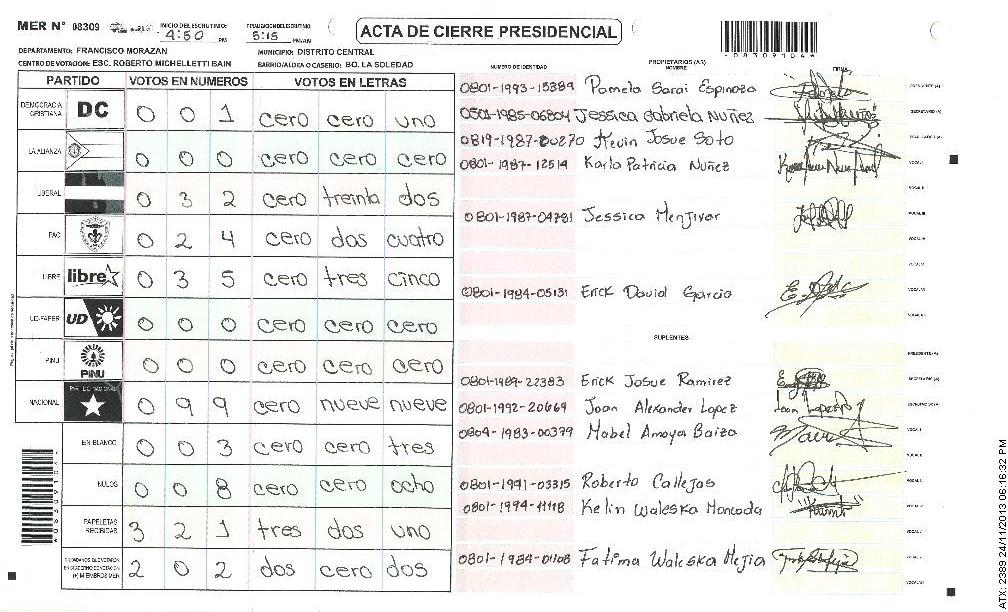 MER N° 08309 INICIO DEL ESCRUTINIO: 4:50 PM FINALIZACION ESCRUTINIO: 5:15 PM/AM ACTA DE CIERRE PRESIDENCIAL
*08309104*
DEPARTAMENTO: FRANCISCO MORAZAN MUNICIPIO: DISTRITO CENTRAL
CENTRO DE VOTACION: ESC. ROBERTO MICHELLETTI BAIN BARRIO/ALDEA O CASERIO: BO. LA SOLEDAD
NUMERO DE IDENTIDAD PROPIETARIOS (AS) NOMBRE FIRMA
PARTIDO VOTOS EN NUMEROS VOTOS EN LETRAS
DEMOCRACIA CRISTIANA DC 0 0 1 cero cero uno
LA ALIANZA 0 0 0 cero cero cero
LIBERAL 0 3 2 cero treinta dos
PAC 0 2 4 cero dos cuatro
LIBRE libre 0 3 5 cero tres cinco
UD-FAPER UD 0 0 0 cero cero cero
PINU PINU 0 0 0 cero cero cero
NACIONAL PARTIDO NACIONAL 0 9 9 cero nueve nueve
EN BLANCO 0 0 3 cero cero tres
NULOS 0 0 8 cero cero ocho
PAPELETAS RECIBIDAS 3 2 1 tres dos uno
(+) MIEMBROS MER 2 0 2 dos cero dos
0801-1993-15389 Pamela Sarai Espinoza PRESIDENTE (A)
0501-1985-06804 Jessica Gabriela Nuñez SECRETARIO (A)
0819-1987-00270 Kevin Josue Soto ESCRUTADOR (A)
0801-1987-12514 Karla Patricia Nuñez VOCAL I
VOCAL II
0801-1987-04781 Jessica Menjivar VOCAL III
VOCAL IV
VOCAL V
0801-1984-05131 Erick David Garcia VOCAL VI
SUPLENTES
PRESIDENTE (A)
0801-1989-22383 Erick Josue Ramirez SECRETARIO (A)
0801-1992-20669 Joan Alexander Lopez ESCRUTADOR (A)
0804-1983-00379 Mabel Amaya Baiza
0801-1991-03315 Roberto Callejas
0801-1994-11118 Kelin Waleska Moncada
0801-1984-01108 Fatima Waleska Mejia
ATX: 2389 24/11/2013 06:16:32 PM